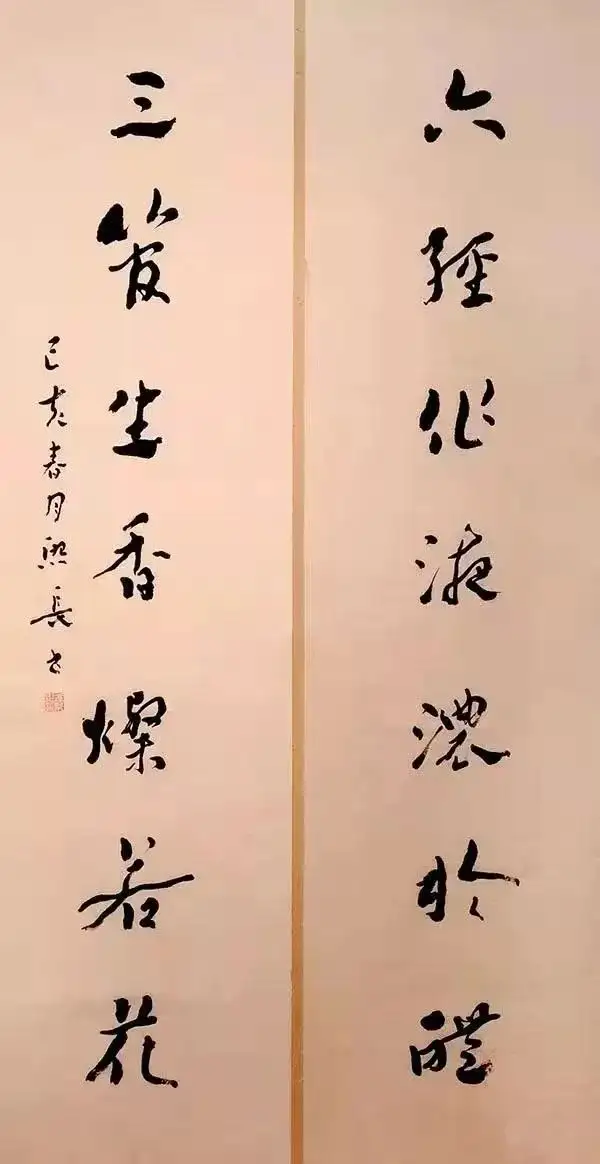 六經作液濃於醴
三管生香燦若花
己亥春月熙長书